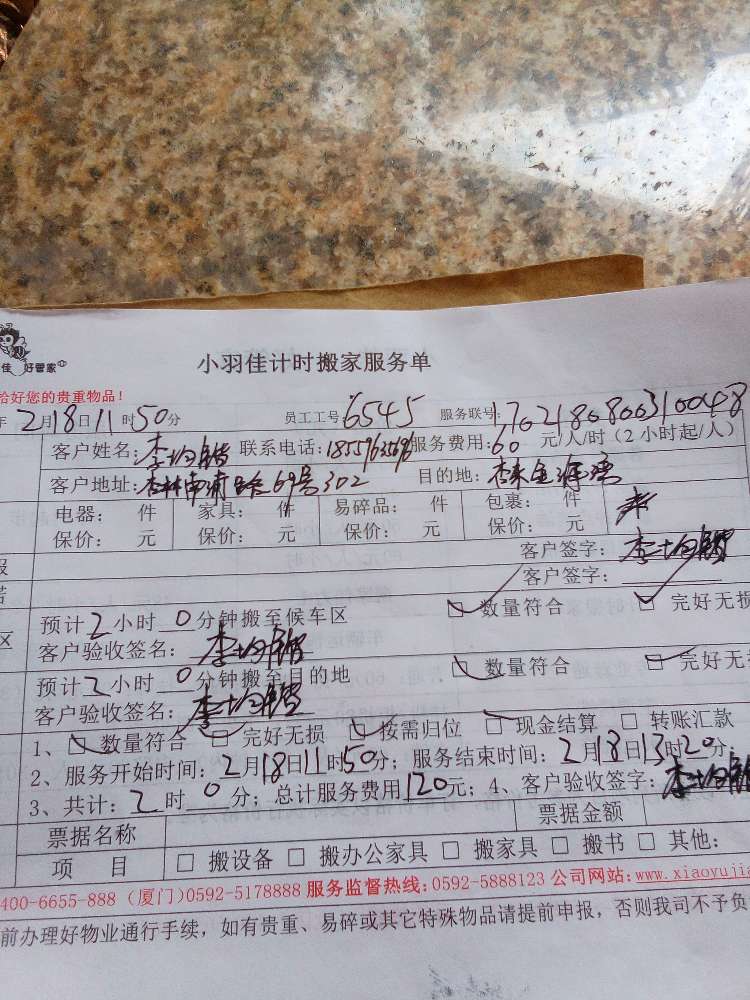 佳 好管家
小羽佳计时搬家服务单
恰好您的贵重物品！
年 2月18日11时50分 员工工号 6545 服务联号: 170218080031 0048
客户姓名: 李 联系电话: 服务费用: 60 元/人/时（2小时起/人）
客户地址: 杏林南浦路69号302 目的地: 杏 金
电器: 件 家具: 件 易碎品: 件 包裹: 件
保价: 元 保价: 元 保价: 元 保价: 元
客户签字: 李
报 客户签字:
诺
预计2小时 0分钟搬至候车区 数量符合 完好无损
区 客户验收签名: 李
预计2小时 0分钟搬至目的地 数量符合 完好无
客户验收签名: 李
1、 数量符合 完好无损 按需归位 现金结算 □ 转账汇款
2、服务开始时间: 2月18日11时50分; 服务结束时间: 2月18日13时20分
3、共计: 2时 0分; 总计服务费用120元; 4、客户验收签字: 李
票据名称 票据金额
项 目 □ 搬设备 □ 搬办公家具 □ 搬家具 □ 搬书 □ 其他:
400-6655-888 (厦门)0592-5178888 服务监督热线:0592-5888123 公司网站:www.xiaoyujia
前办理好物业通行手续，如有贵重、易碎或其它特殊物品请提前申报，否则我司不予负